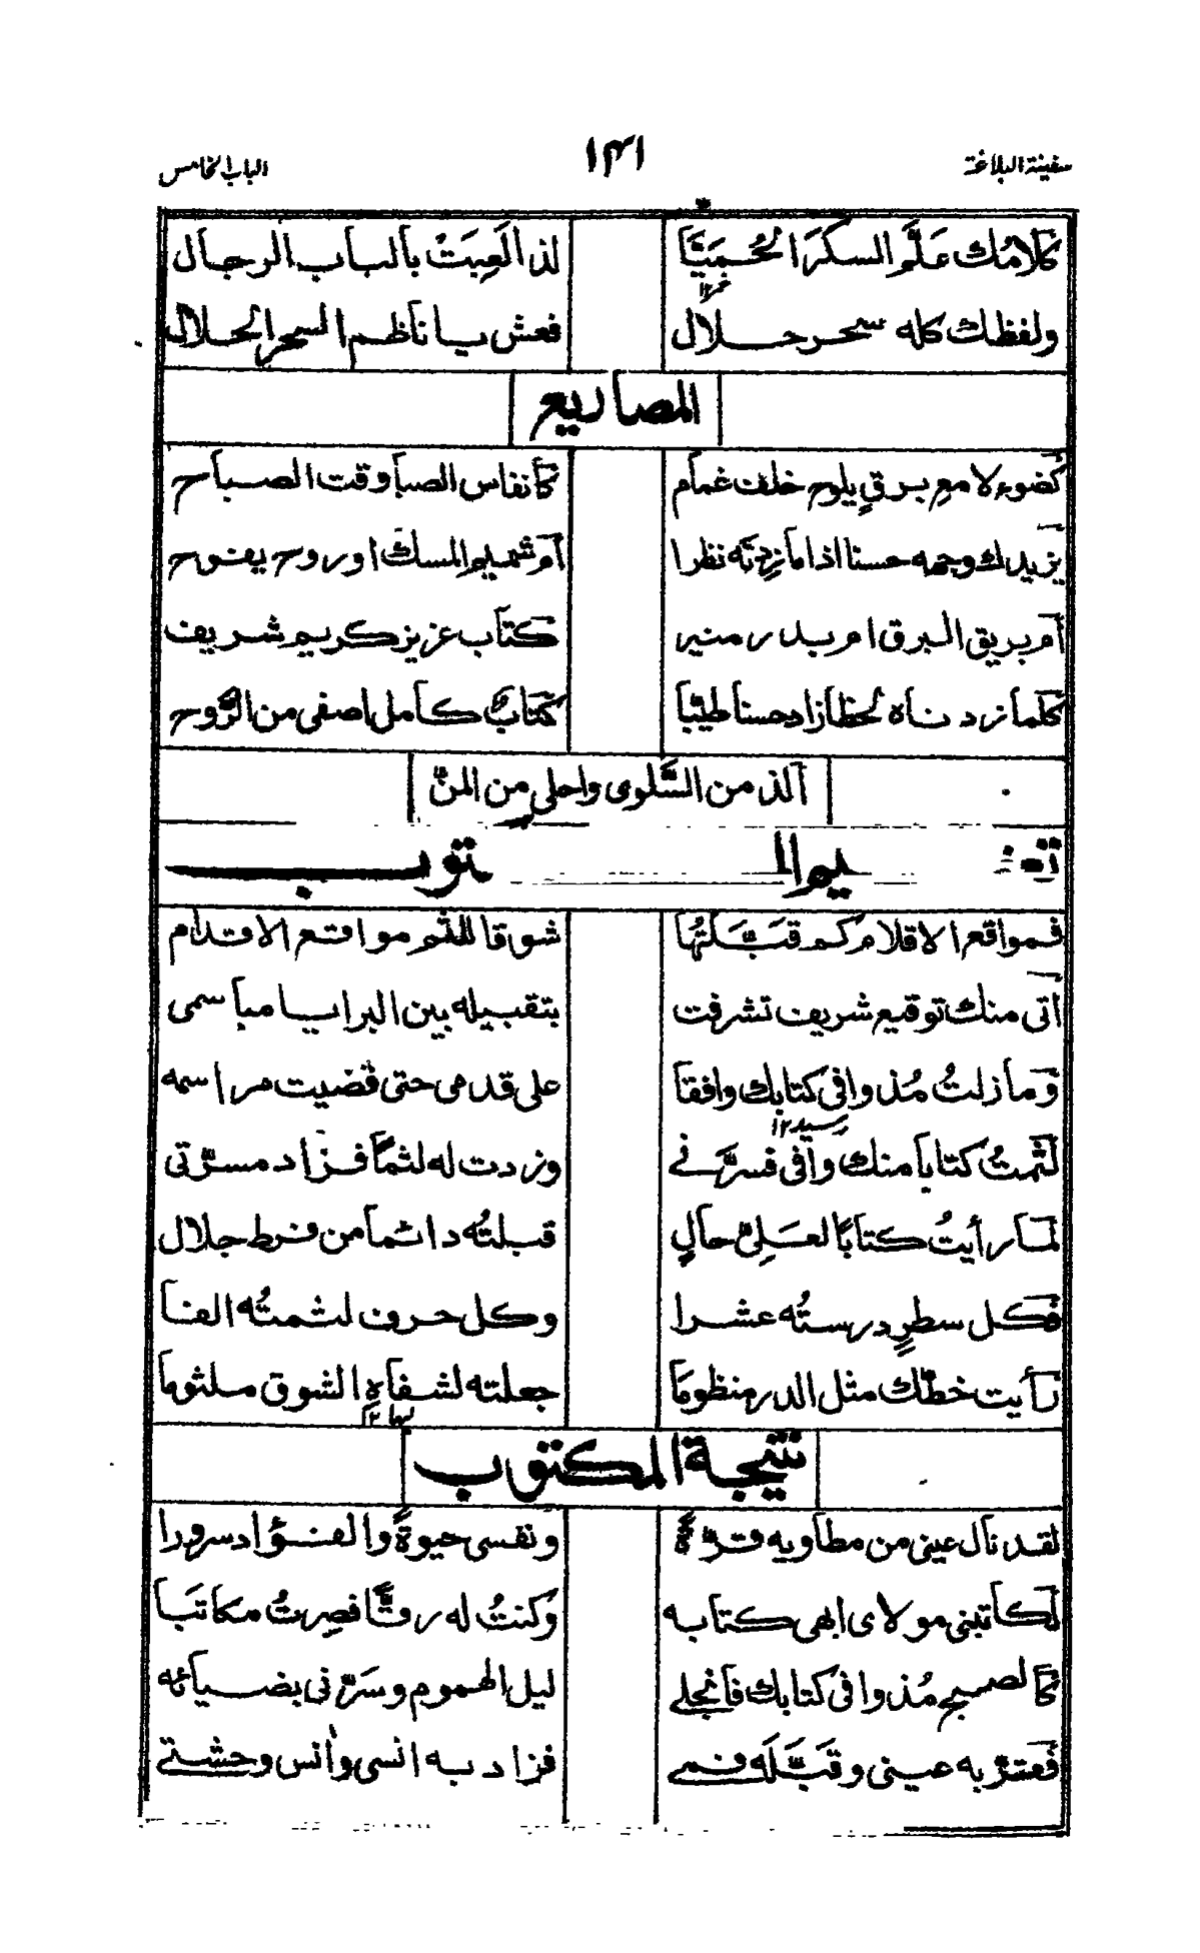 سفينة البلاغة ١٤١ الباب الخامس
كلامُك عَلَّم السكرَ الحُمَيَّا لذا لَعِبَتْ بألباب الرجال
خمر ١٢
ولفظك كله سحر حلال فعش يا ناظم السحر الحلال
المصاريع
كضوء لامع برقٍ يلوح خلف غمام كأنفاس الصبا وقت الصباح
يزيدك وجهه حسنا اذا ما زدته نظرا ام شميم المسك او روح يفوح
أم بريق البرق ام بدر منير كتاب عزيز كريم شريف
كلما زدناه لحظا زاد حسنا طيّبا كتابٌ كامل اصفى من الرَّوح
ألذ من السَّلوى واحلى من المنّ
توب
فمواقع الاقلام كم قبَّلتُها شوقا للثم مواقع الاقدام
أتى منك توقيع شريف تشرفت بتقبيله بين البرايا مباسمى
وما زلتُ مُذ وافى كتابك واقفا على قدمى حتى قضيت مراسمه
رسيد ١٢
لثمتُ كتابا منك وافى فسرَّنى وزدت له لثمًا فزاد مسرّتى
لما رأيتُ كتابًا لعَلِىّ حالٍ قبلتُه دائما من فرط جلال
فكل سطرٍ درستُه عشرا وكل حرف لثمتُه الفا
رأيت خطّك مثل الدر منظومًا جعلته لشفاهِ الشوق ملثوما
لبها ١٢
نتيجة المكتوب
لقد نال عينى من مطاويه قرّةً ونفسى حيوةً والفؤاد سرورا
لكاتبنى مولاى ابهى كتابه وكنتُ له رقًّا فصِرتُ مكاتَبا
كالصبح مُذ وافى كتابك فانجلى ليل الهموم وسَرّنى بضيائه
فقرّ به عينى وقبَّلَه فمى فزاد به انسى وأنس وحشتى